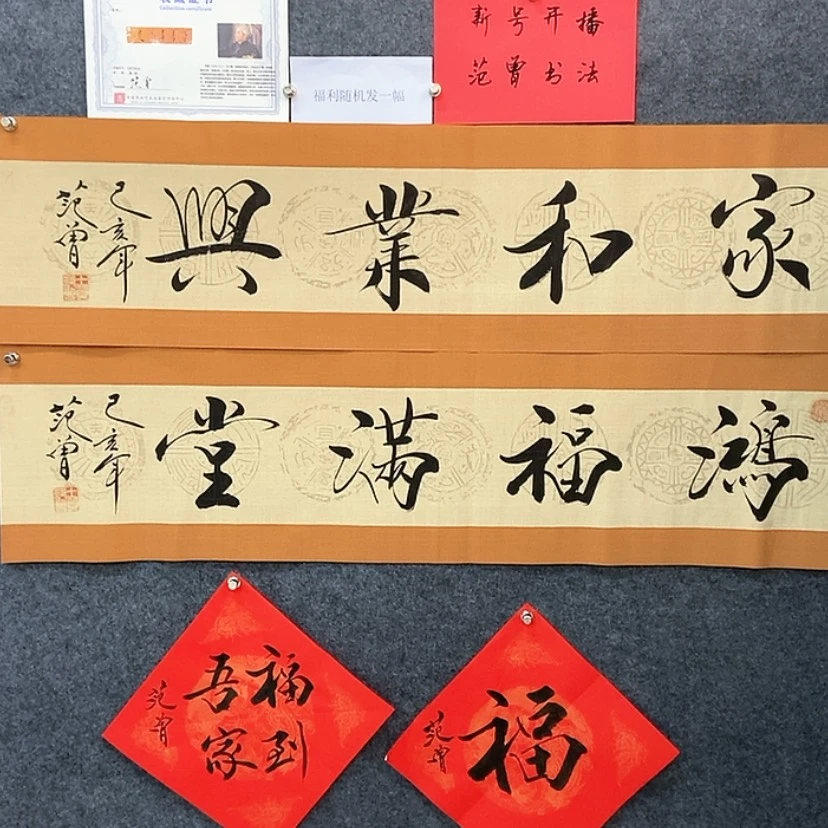 收藏证书
Collection certificate
新号开播
范曾书法
福利随机发一幅
家和業興
己亥年
范曾
鴻福满堂
己亥年
范曾
福到
吾家
范曾
福
范曾